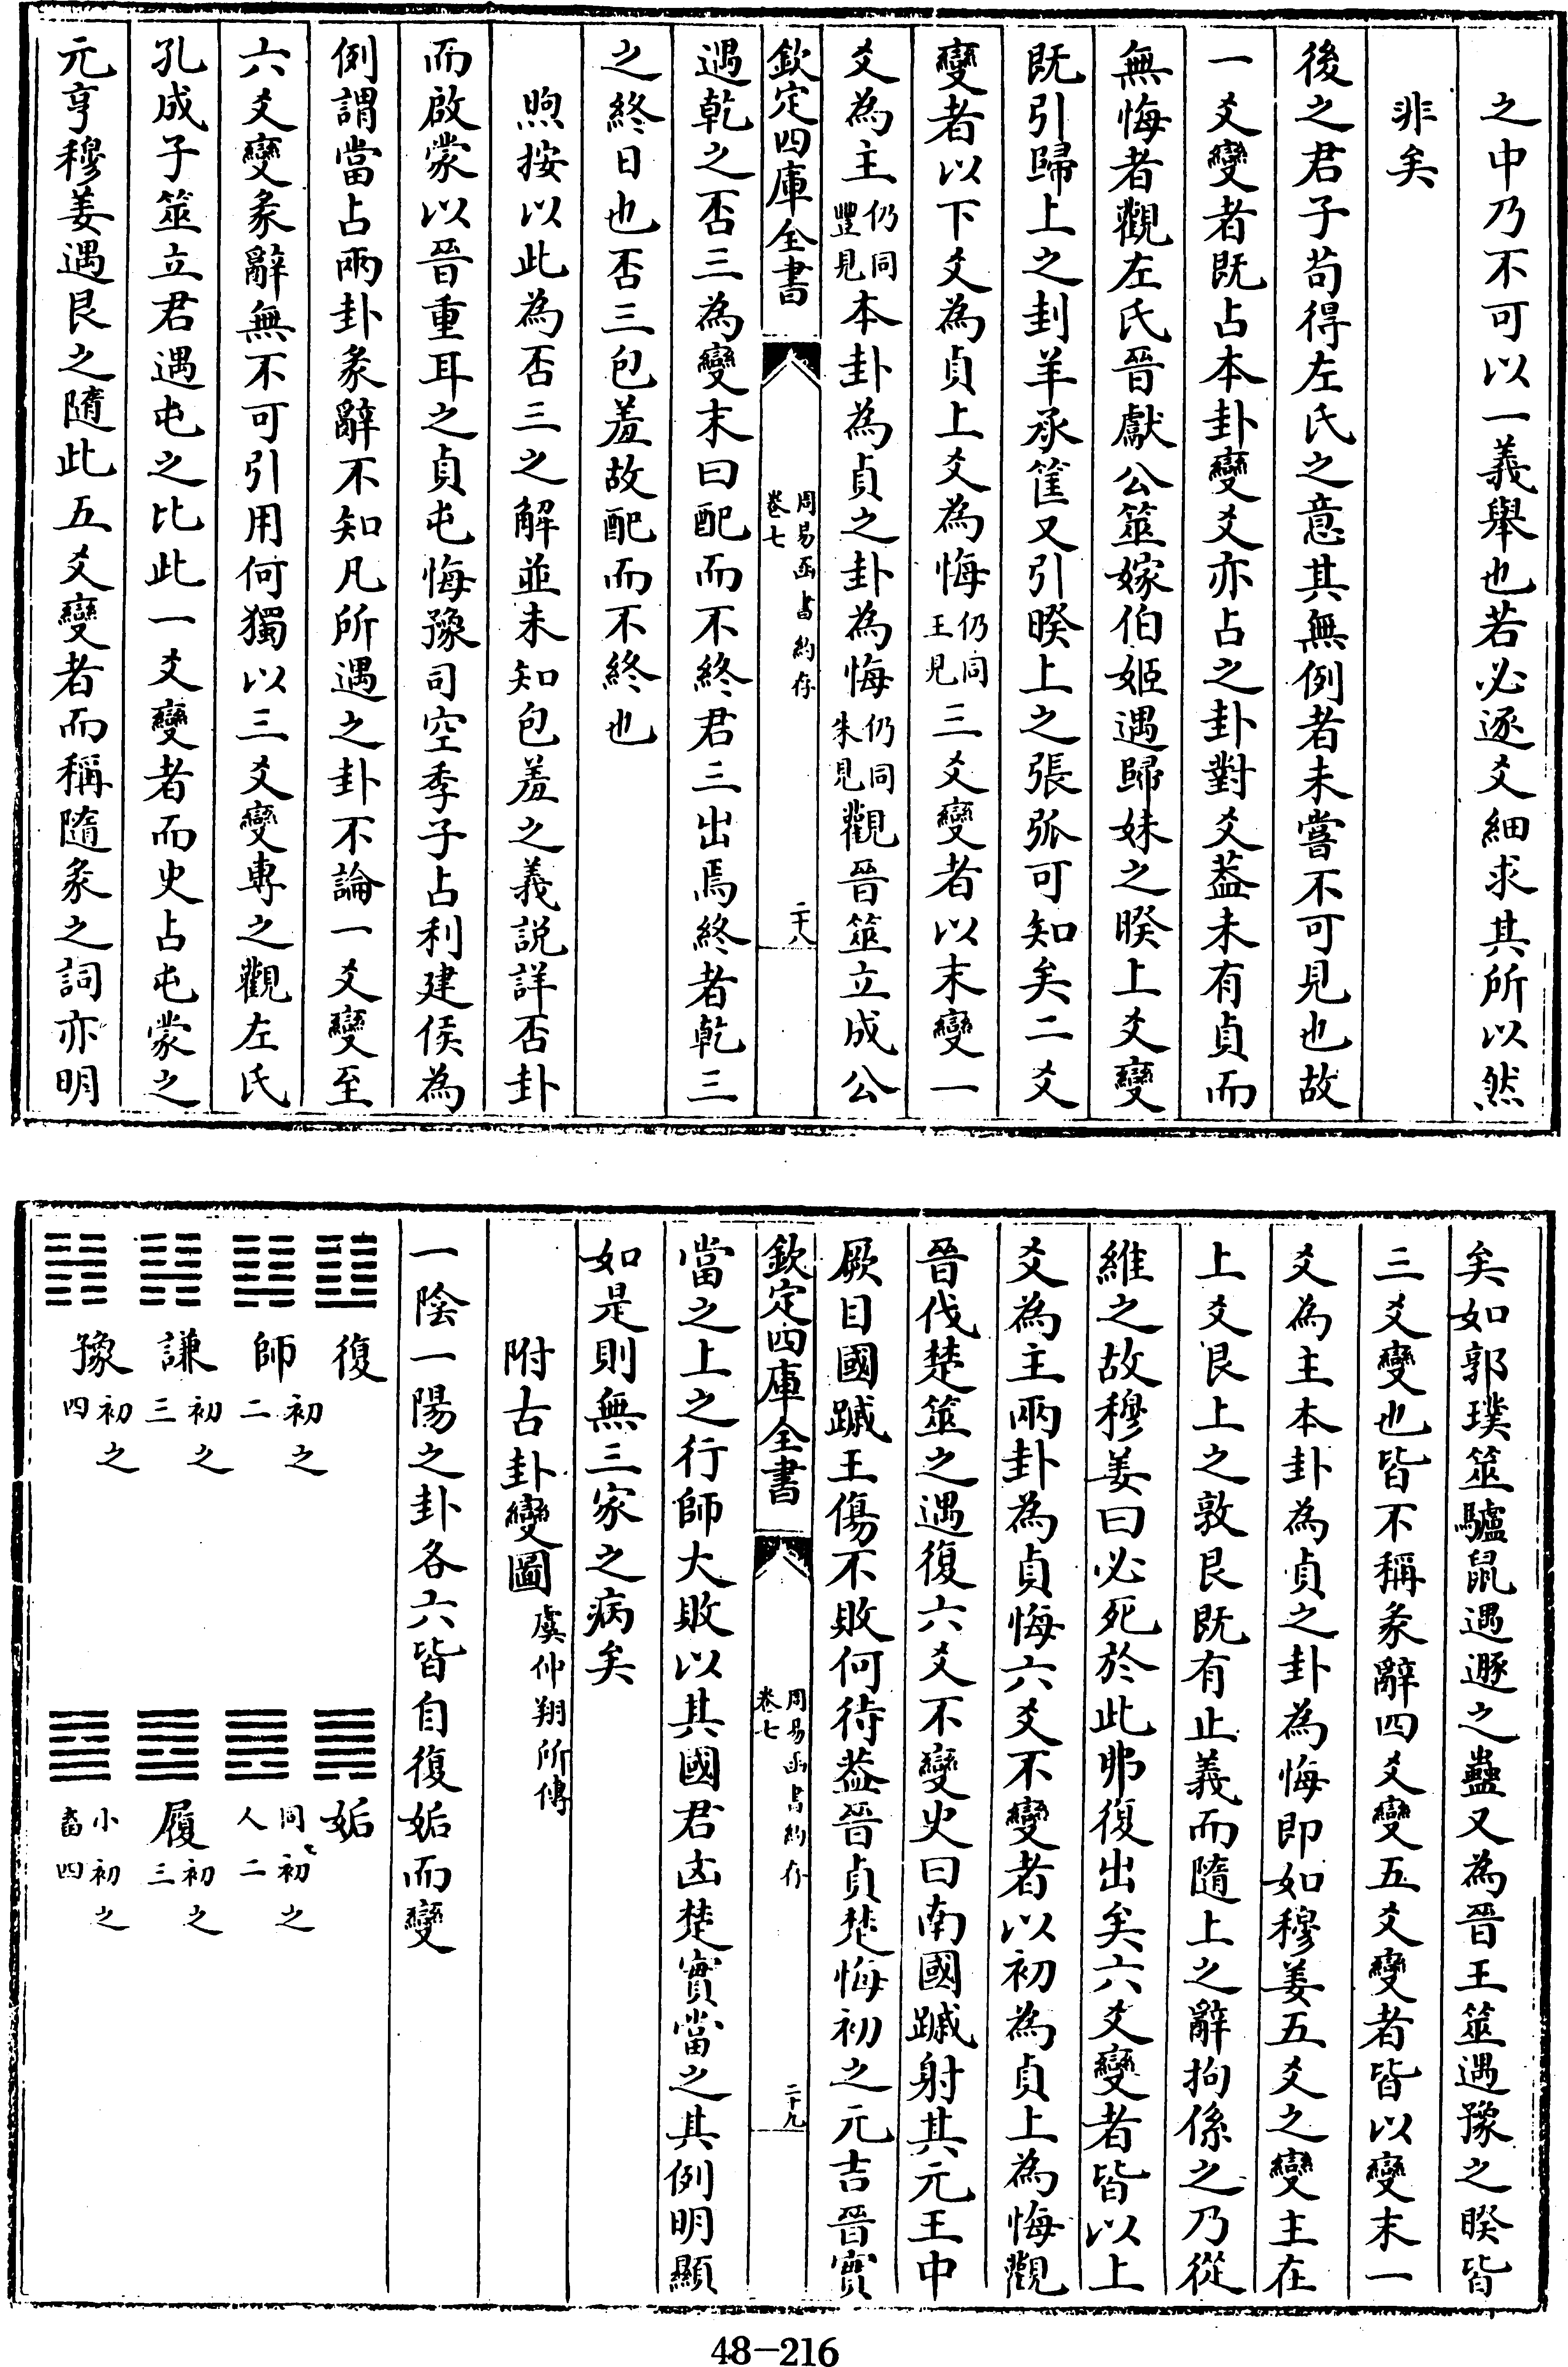 之中乃不可以一義舉也若必逐爻細求其所以然
非矣
後之君子苟得左氏之意其無例者未嘗不可見也故
一爻變者既占本卦變爻亦占之卦對爻葢未有貞而
無悔者觀左氏晉獻公筮嫁伯姬遇歸妹之睽上爻變
既引歸上之刲羊承筐又引睽上之張弧可知矣二爻
變者以下爻為貞上爻為悔仍同王見三爻變者以末變一
爻為主仍同豐見本卦為貞之卦為悔仍同朱見觀晉筮立成公
欽定四庫全書
周易函書約存
卷七
二十八
遇乾之否三為變末曰配而不終君三出焉終者乾三
之終日也否三包羞故配而不終也
煦按以此為否三之解並未知包羞之義說詳否卦
而啟蒙以晉重耳之貞屯悔豫司空季子占利建侯為
例謂當占兩卦彖辭不知凡所遇之卦不論一爻變至
六爻變彖辭無不可引用何獨以三爻變專之觀左氏
孔成子筮立君遇屯之比此一爻變者而史占屯蒙之
元亨穆姜遇艮之隨此五爻變者而稱隨彖之詞亦明
矣如郭璞筮驢鼠遇遯之蠱又為晉王筮遇豫之睽皆
三爻變也皆不稱彖辭四爻變五爻變者皆以變末一
爻為主本卦為貞之卦為悔即如穆姜五爻之變主在
上爻艮上之敦艮既有止義而隨上之辭拘係之乃從
維之故穆姜曰必死於此弗復出矣六爻變者皆以上
爻為主兩卦為貞悔六爻不變者以初為貞上為悔觀
晉伐楚筮之遇復六爻不變史曰南國䠞射其元王中
厥目國䠞王傷不敗何待葢晉貞楚悔初之元吉晉實
欽定四庫全書
周易函書約存
卷七
二十九
當之上之行師大敗以其國君凶楚實當之其例明顯
如是則無三家之病矣
附古卦變圖虞仲翔所傳
一陰一陽之卦各六皆自復姤而變
復 姤
師初之二 同人初之二
謙初之三 履初之三
豫初之四 小畜初之四
48-216